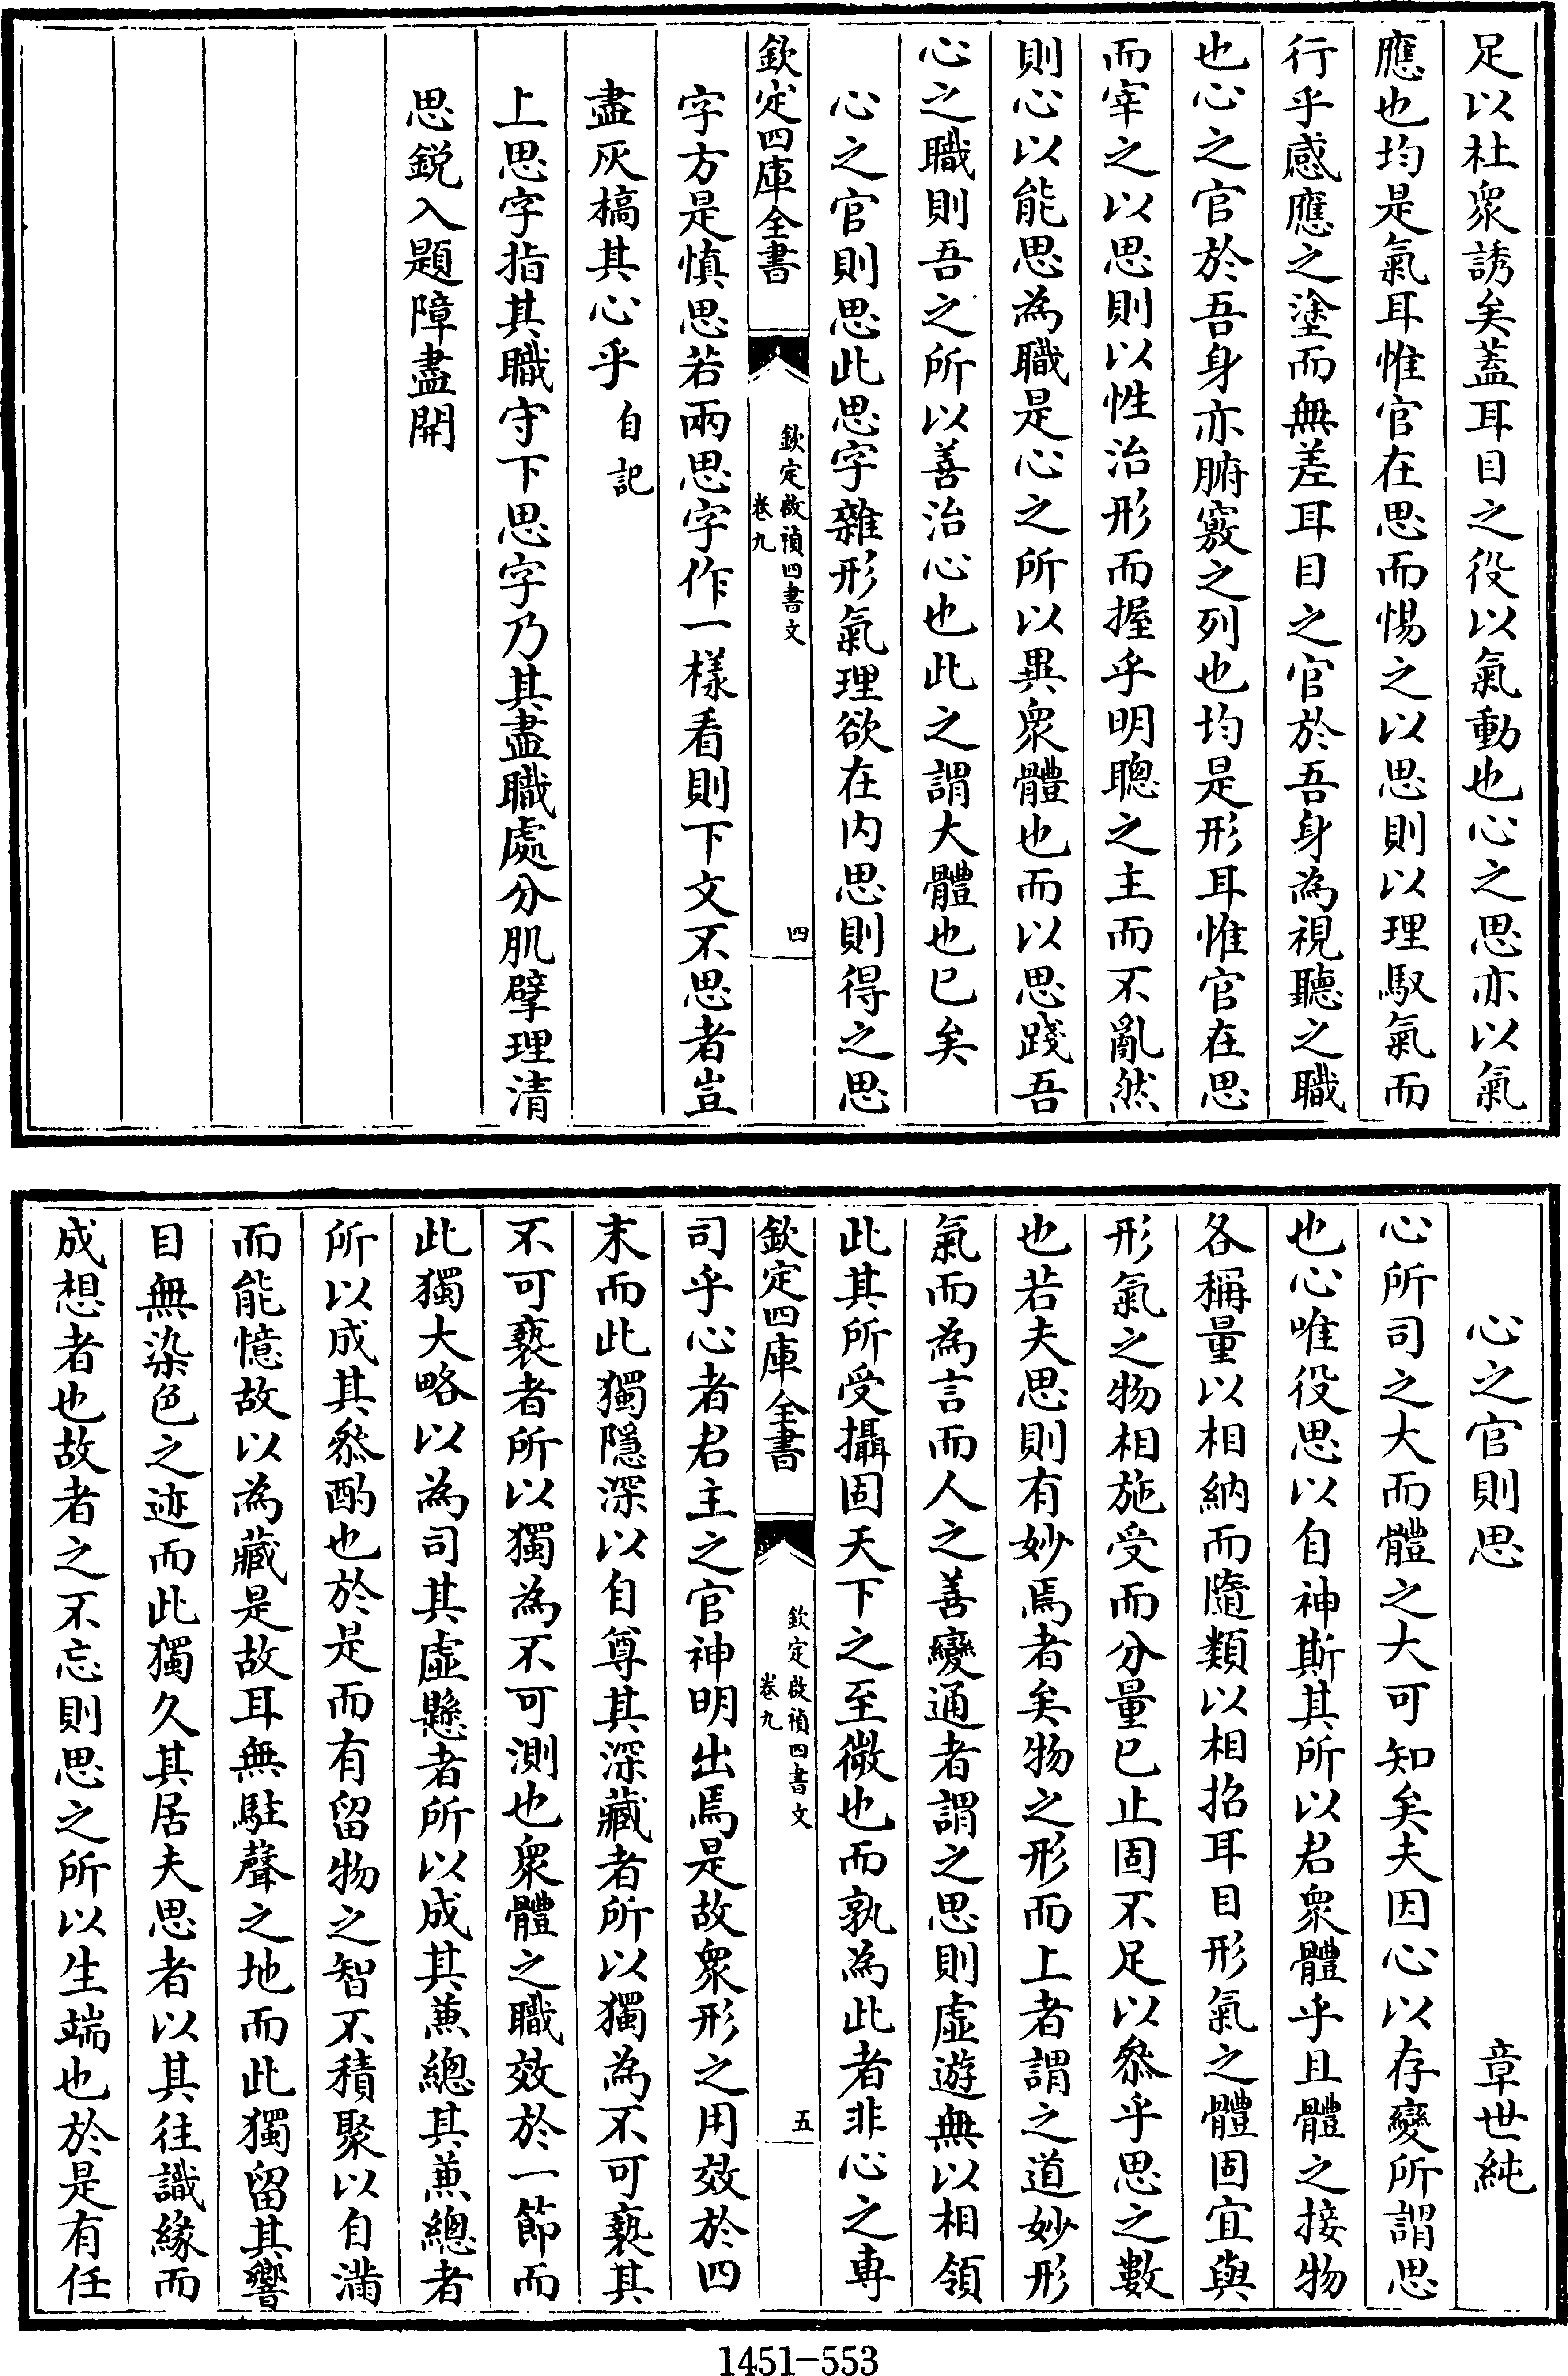 足以杜衆誘矣蓋耳目之役以氣動也心之思亦以氣
應也均是氣耳惟官在思而惕之以思則以理馭氣而
行乎感應之塗而無差耳目之官於吾身為視聽之職
也心之官於吾身亦腑竅之列也均是形耳惟官在思
而宰之以思則以性治形而握乎明聰之主而不亂然
則心以能思為職是心之所以異衆體也而以思踐吾
心之職則吾之所以善治心也此之謂大體也已矣
心之官則思此思字雜形氣理欲在内思則得之思
欽定四庫全書
欽定啟禎四書文
卷九
四
字方是慎思若兩思字作一樣看則下文不思者豈
盡灰槁其心乎自記
上思字指其職守下思字乃其盡職處分肌擘理清
思鋭入題障盡開
心之官則思 章世純
心所司之大而體之大可知矣夫因心以存變所謂思
也心唯役思以自神斯其所以君衆體乎且體之接物
各稱量以相納而隨類以相招耳目形氣之體固宜與
形氣之物相施受而分量已止固不足以叅乎思之數
也若夫思則有妙焉者矣物之形而上者謂之道妙形
氣而為言而人之善變通者謂之思則虛遊無以相領
此其所受攝固天下之至微也而孰為此者非心之專
欽定四庫全書
欽定啟禎四書文
卷九
五
司乎心者君主之官神明出焉是故衆形之用效於四
末而此獨隱深以自尊其深藏者所以獨為不可褻其
不可褻者所以獨為不可測也衆體之職效於一節而
此獨大略以為司其虛懸者所以成其兼總其兼總者
所以成其叅酌也於是而有留物之智不積聚以自滿
而能憶故以為藏是故耳無駐聲之地而此獨留其響
目無染色之迹而此獨久其居夫思者以其往識緣而
成想者也故者之不忘則思之所以生端也於是有任
1451-553